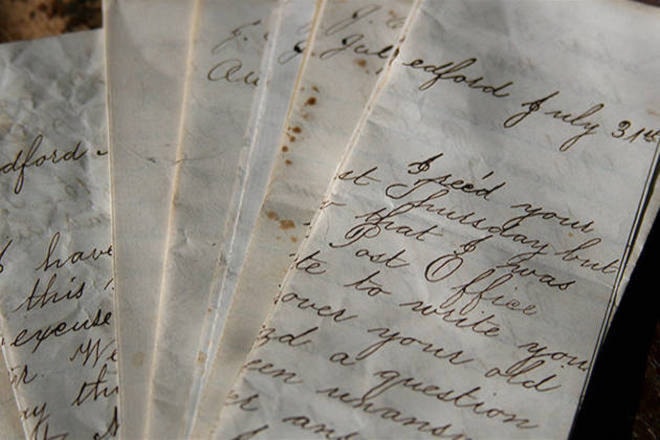 dford
I have
this
excuse
r. We
ay thi
J.
Au
J.
Jul
edford July 31st
I rec'd your
st Thursday but
that I was
Post Office
te to write you
over your old
d a question
een unansw
er an